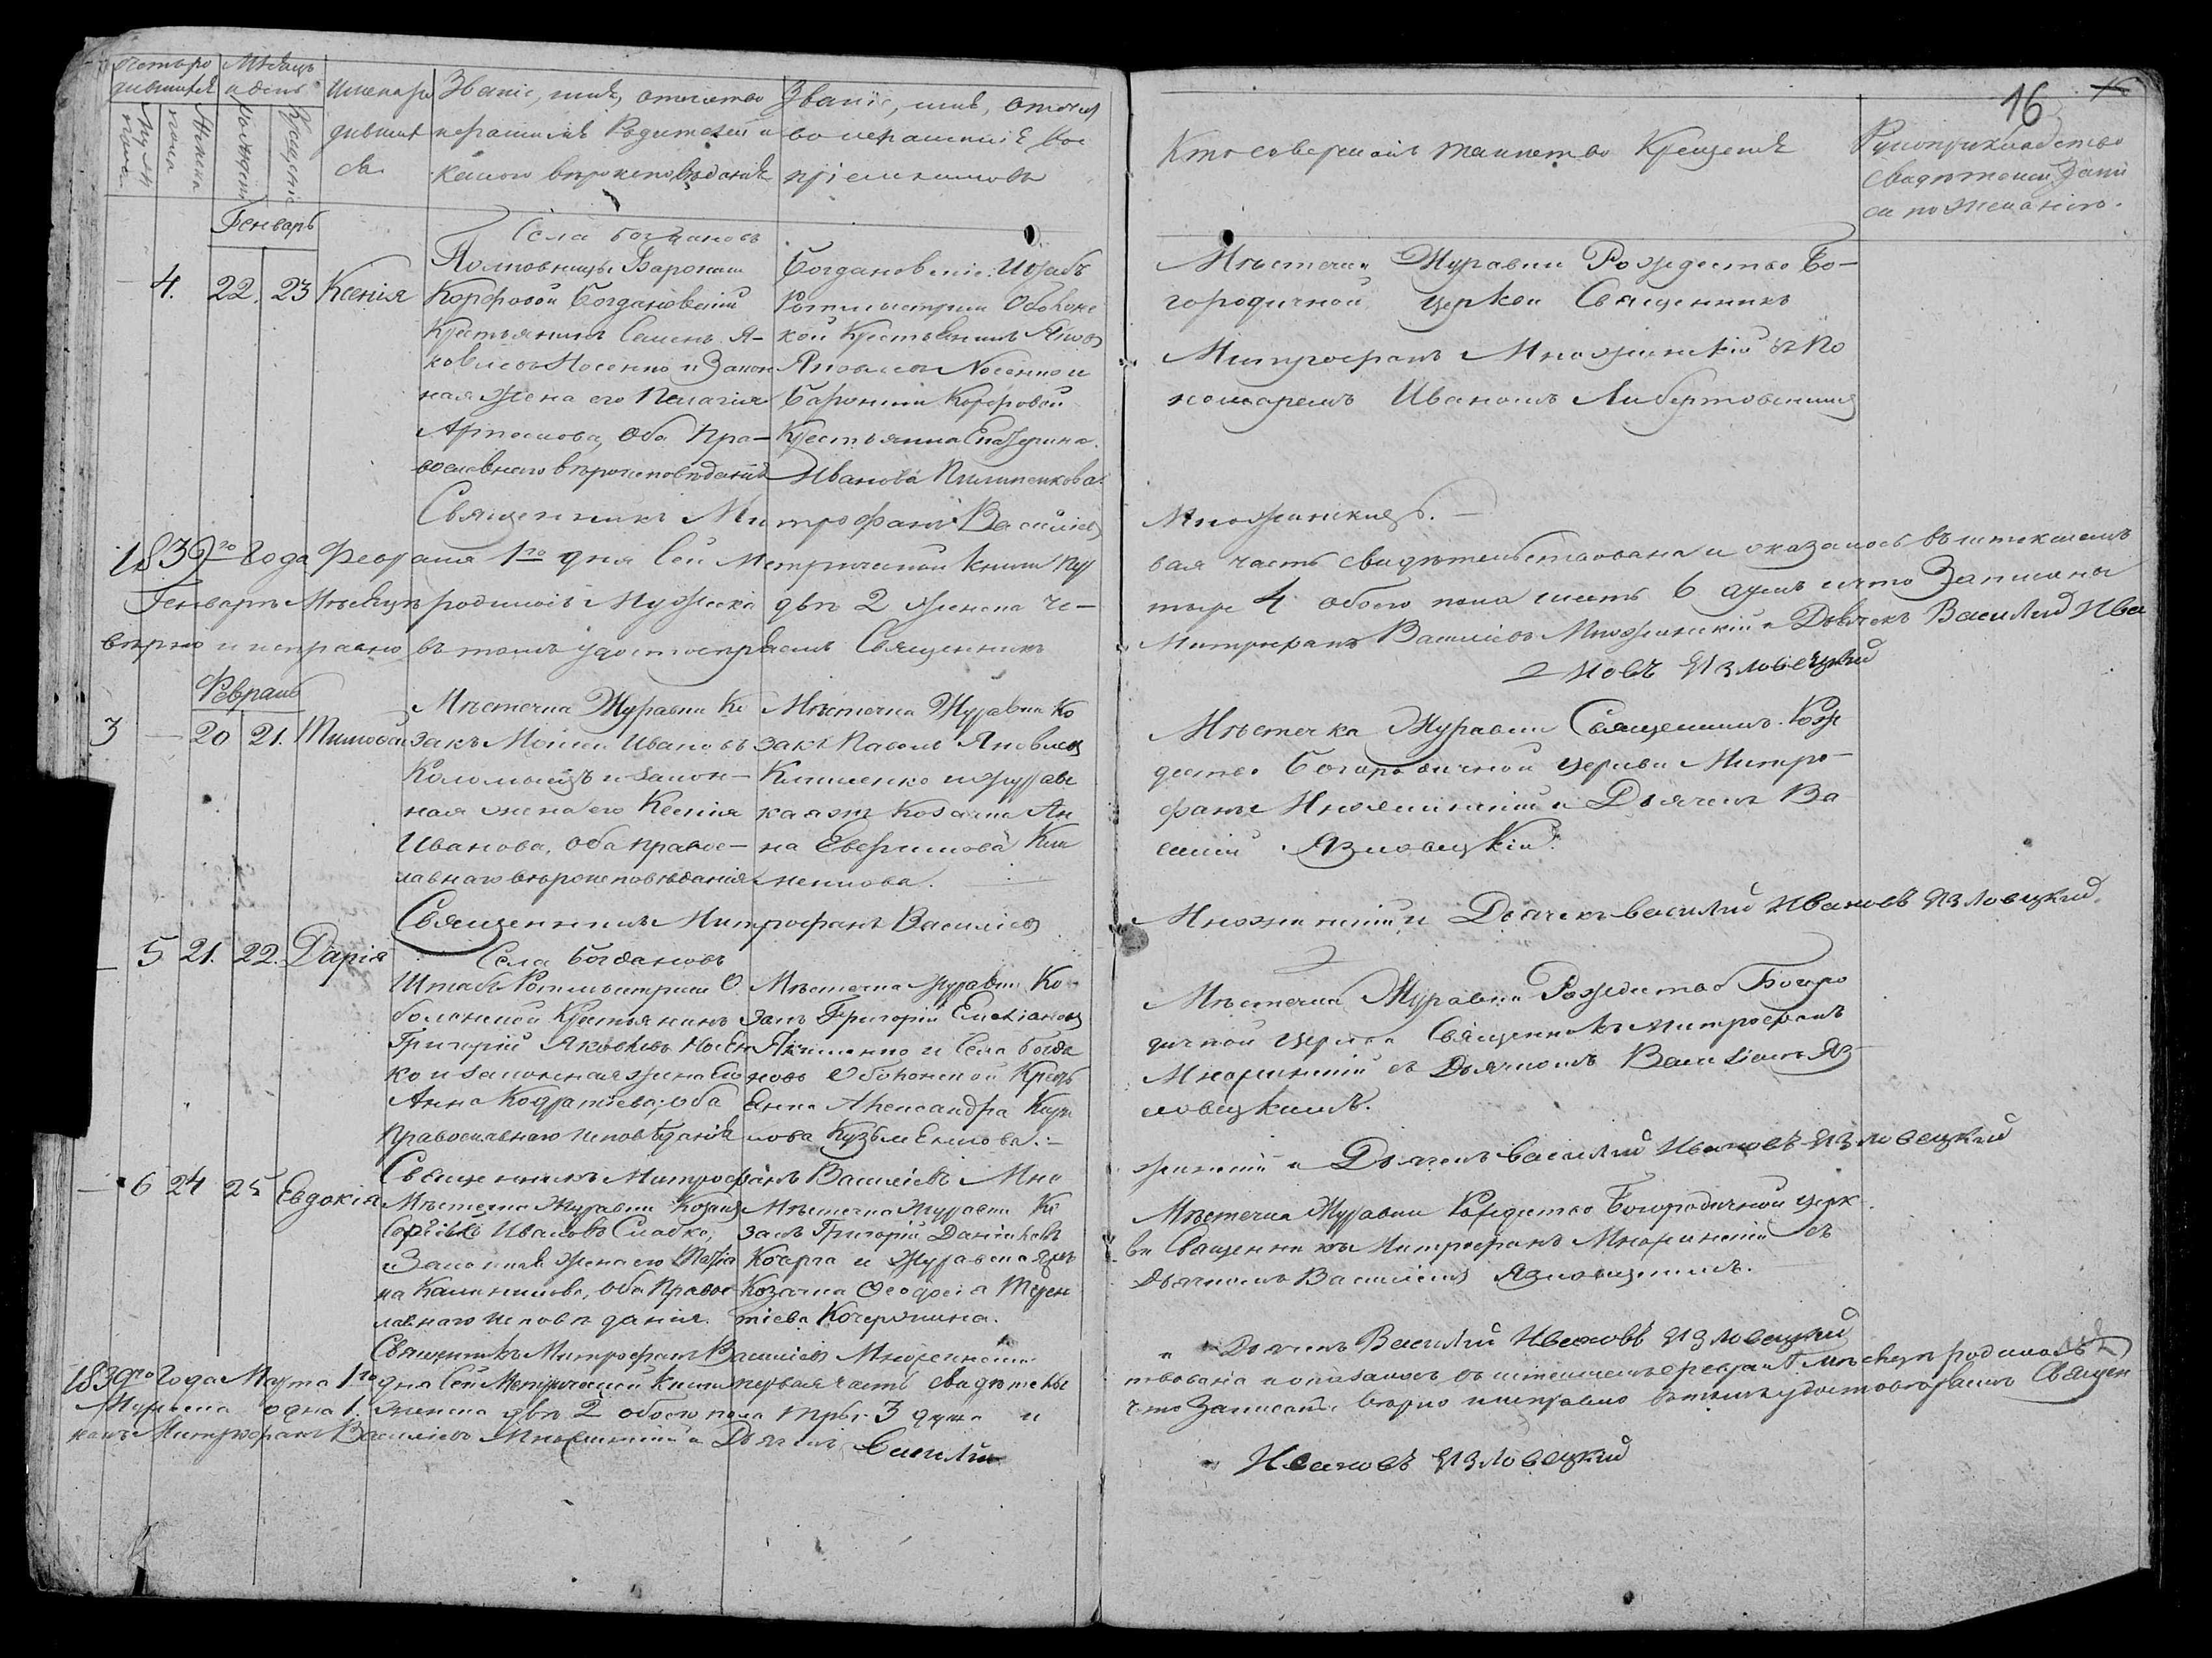 16
Счетъ ро
дившихся
Мѣсяцъ
и день
Имена ро
дивших
ся
Званіе, имя, отчество
и какого Родители и
какого вѣроисповѣданія
Званіе, имя, отчест
во и фамилія вос
пріемниковъ
Кто совершалъ таинство Крещенія
Рукоприкладство
свидѣтелей запи
си по желанію.
Мужеска
пола
Женска
пола
Рожденія
Крещенія
Генварь
4. 22. 23 Ксенія
Села Богдановъ
Полковницы Баронши
Корфовой Богдановскій
Крестьянинъ Семенъ Я-
ковлевъ Носенко и Закон
ная жена его Пелагія
Артемова, Оба Пра-
вославнаго вѣроисповѣданія
Богдановскіе: Штабъ
Ротмистрши Оболонс
кой Крестьянинъ Яковъ
Яковлевъ Носенко и
Баронши Корфовой
Крестьянка Екатерина
Иванова Пилипенкова.
Мѣстечка Журавки Рождество Бо-
городичной церкви Священникъ
Митрофанъ Множинскій съ По
номаремъ Иваномъ Либертовскимъ
Священникъ Митрофанъ Василіевъ Множинскій.
1839го Года Февраля 1го дня Сей Метрической Книги пер
вая часть свидѣтельствована и оказалось въ истекшемъ
Генварѣ Мѣсяцѣ родилось Мужеска двѣ 2 женска че-
тыре 4 обоего пола шесть 6 душъ и что Записаны
вѣрно и исправно въ томъ удостовѣряемъ Священникъ
Митрофанъ Василіевъ Множинскій и Дьячекъ Василій Ива
новъ Язловецкій
Февраль
3 — 20 21. Тимофей
Мѣстечка Журавки Ко
закъ Моисей Ивановъ
Коломыецъ и закон-
ная жена его Ксенія
Иванова, оба правос-
лавнаго вѣроисповѣданія
Мѣстечка Журавки Ко
закъ Павелъ Яковлевъ
Клименко и журавс
кая жъ козачка Ан
на Евфимова Кли
менкова.
Мѣстечка Журавки Священникъ Рож
дество Богородичной церкви Митро-
фанъ Множинскій и Дьячекъ Ва
силій Язловецкій.
Священникъ Митрофанъ Василіевъ
Множинскій и Дьячекъ Василій Ивановъ Язловецкій
— 5 21. 22. Дарія
Села Богдановъ
Штабъ Ротмистрши О
болонской Крестьянинъ
Григорій Яковлевъ Носен
ко и законная жена Его
Анна Кондратіева; оба
Православнаго исповѣданія
Мѣстечка Журавки Ко-
закъ Григорій Емеліановъ
Якименко и Села Богда
новъ Оболонской Кресть
янка Александра Кири
лова Кузьменкова.
Мѣстечка Журавки Рождество Богоро
дичной церкви Священникъ Митрофанъ
Множинскій съ Дьячкомъ Василіемъ Яз
ловецкимъ.
Священникъ Митрофанъ Василіевъ Мно
жинскій и Дьячекъ Василій Ивановъ Язловецкій
— 6 24 25 Евдокія
Мѣстечка Журавки Козакъ
Сергій Ивановъ Сладко,
и Законная жена его
на Калиникова, оба Правос
лавнаго исповѣданія.
Мѣстечка Журавки Ко
закъ Григорій Даниловъ
Кочерга и Журавская жъ
Козачка Феодосія Терен
тіева Кочержина.
Мѣстечка Журавки Рождество Богородичной церк
ви Священникъ Митрофанъ Множинскій съ
Дьячкомъ Василіемъ Язловецкимъ.
Священникъ Митрофанъ Василіевъ Множинскій
и Дьячекъ Василій Ивановъ Язловецкій
1839го Года Марта 1го дня Сей Метрической Книги первая часть свидѣтель
ствована и оказалось въ истекшемъ Февралѣ мѣсяцѣ родилось
Мужеска одна 1. женска двѣ 2 обоего пола трое 3 душъ и
что Записаны вѣрно и исправно въ томъ удостовѣряемъ Священ
никъ Митрофанъ Василіевъ Множинскій и Дьячекъ Василій
Ивановъ Язловецкій